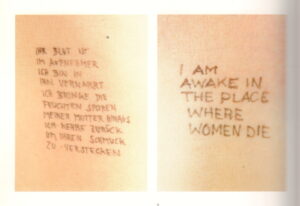 IHR BLUT IST
IM AUFNEHMER
ICH BIN IN
IHR VERNARRT
ICH BRINGE DIE
FEUCHTEN SPUREN
MEINER MUTTER HINAUS
ICH KEHRE ZURÜCK
UM IHREN SCHMUCK
ZU VERSTECKEN
I AM
AWAKE IN
THE PLACE
WHERE
WOMEN DIE